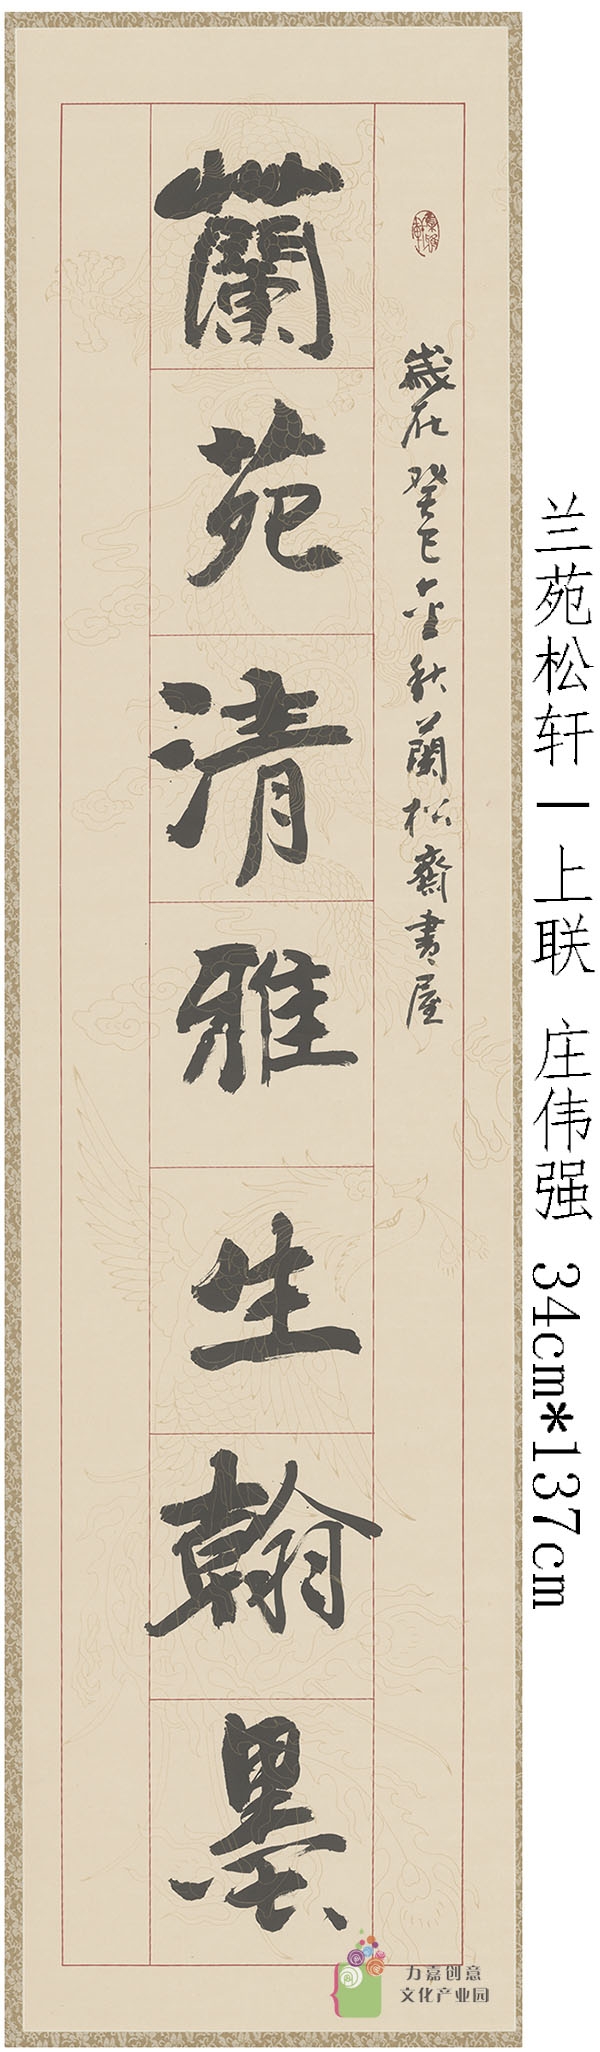 蘭苑清雅生翰墨
歲在癸巳金秋蘭松齋書屋
兰苑松轩－上联 庄伟强 34cm*137cm
力嘉创意
文化产业园